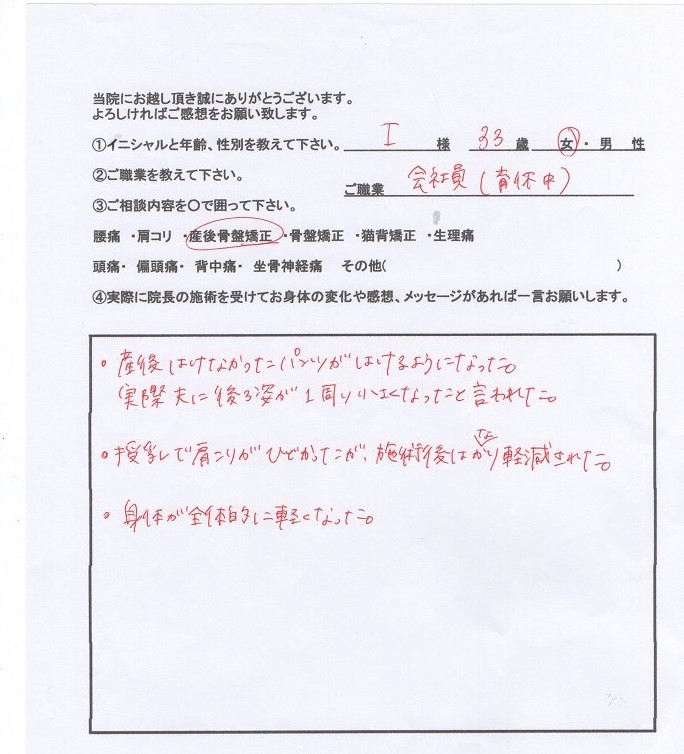 当院にお越し頂き誠にありがとうございます。
よろしければご感想をお願い致します。
①イニシャルと年齢、性別を教えて下さい。 I 様 33 歳 女・男 性
②ご職業を教えて下さい。
ご職業 会社員(育休中)
③ご相談内容を〇で囲って下さい。
腰痛 ・肩コリ ・産後骨盤矯正 ・骨盤矯正 ・猫背矯正 ・生理痛
頭痛・ 偏頭痛・ 背中痛・ 坐骨神経痛 その他( )
④実際に院長の施術を受けてお身体の変化や感想、メッセージがあれば一言お願いします。
・産後はけなかったパンツがはけるようになった。
実際夫に後ろ姿が1周り小さくなったと言われた。
・授乳で肩こりがひどかったが、施術後はかなり軽減された。
・身体が全体的に軽くなった。